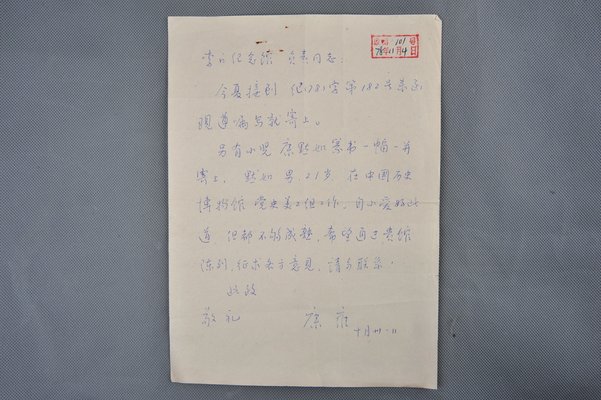 李白纪念馆 负责同志:
101号
78年11月4日
今夏接到 (78)字第182号来函
现遵嘱写就寄上。
另有小児 康默如篆书一幅一并
寄上, 默如男, 21岁, 在中国历史
博物馆 党史美工组工作, 自小爱好此
道 但都不够成熟, 希望通过贵馆
陈列, 征求各方意见, 请与联系.
此致
敬礼 康雍
十月